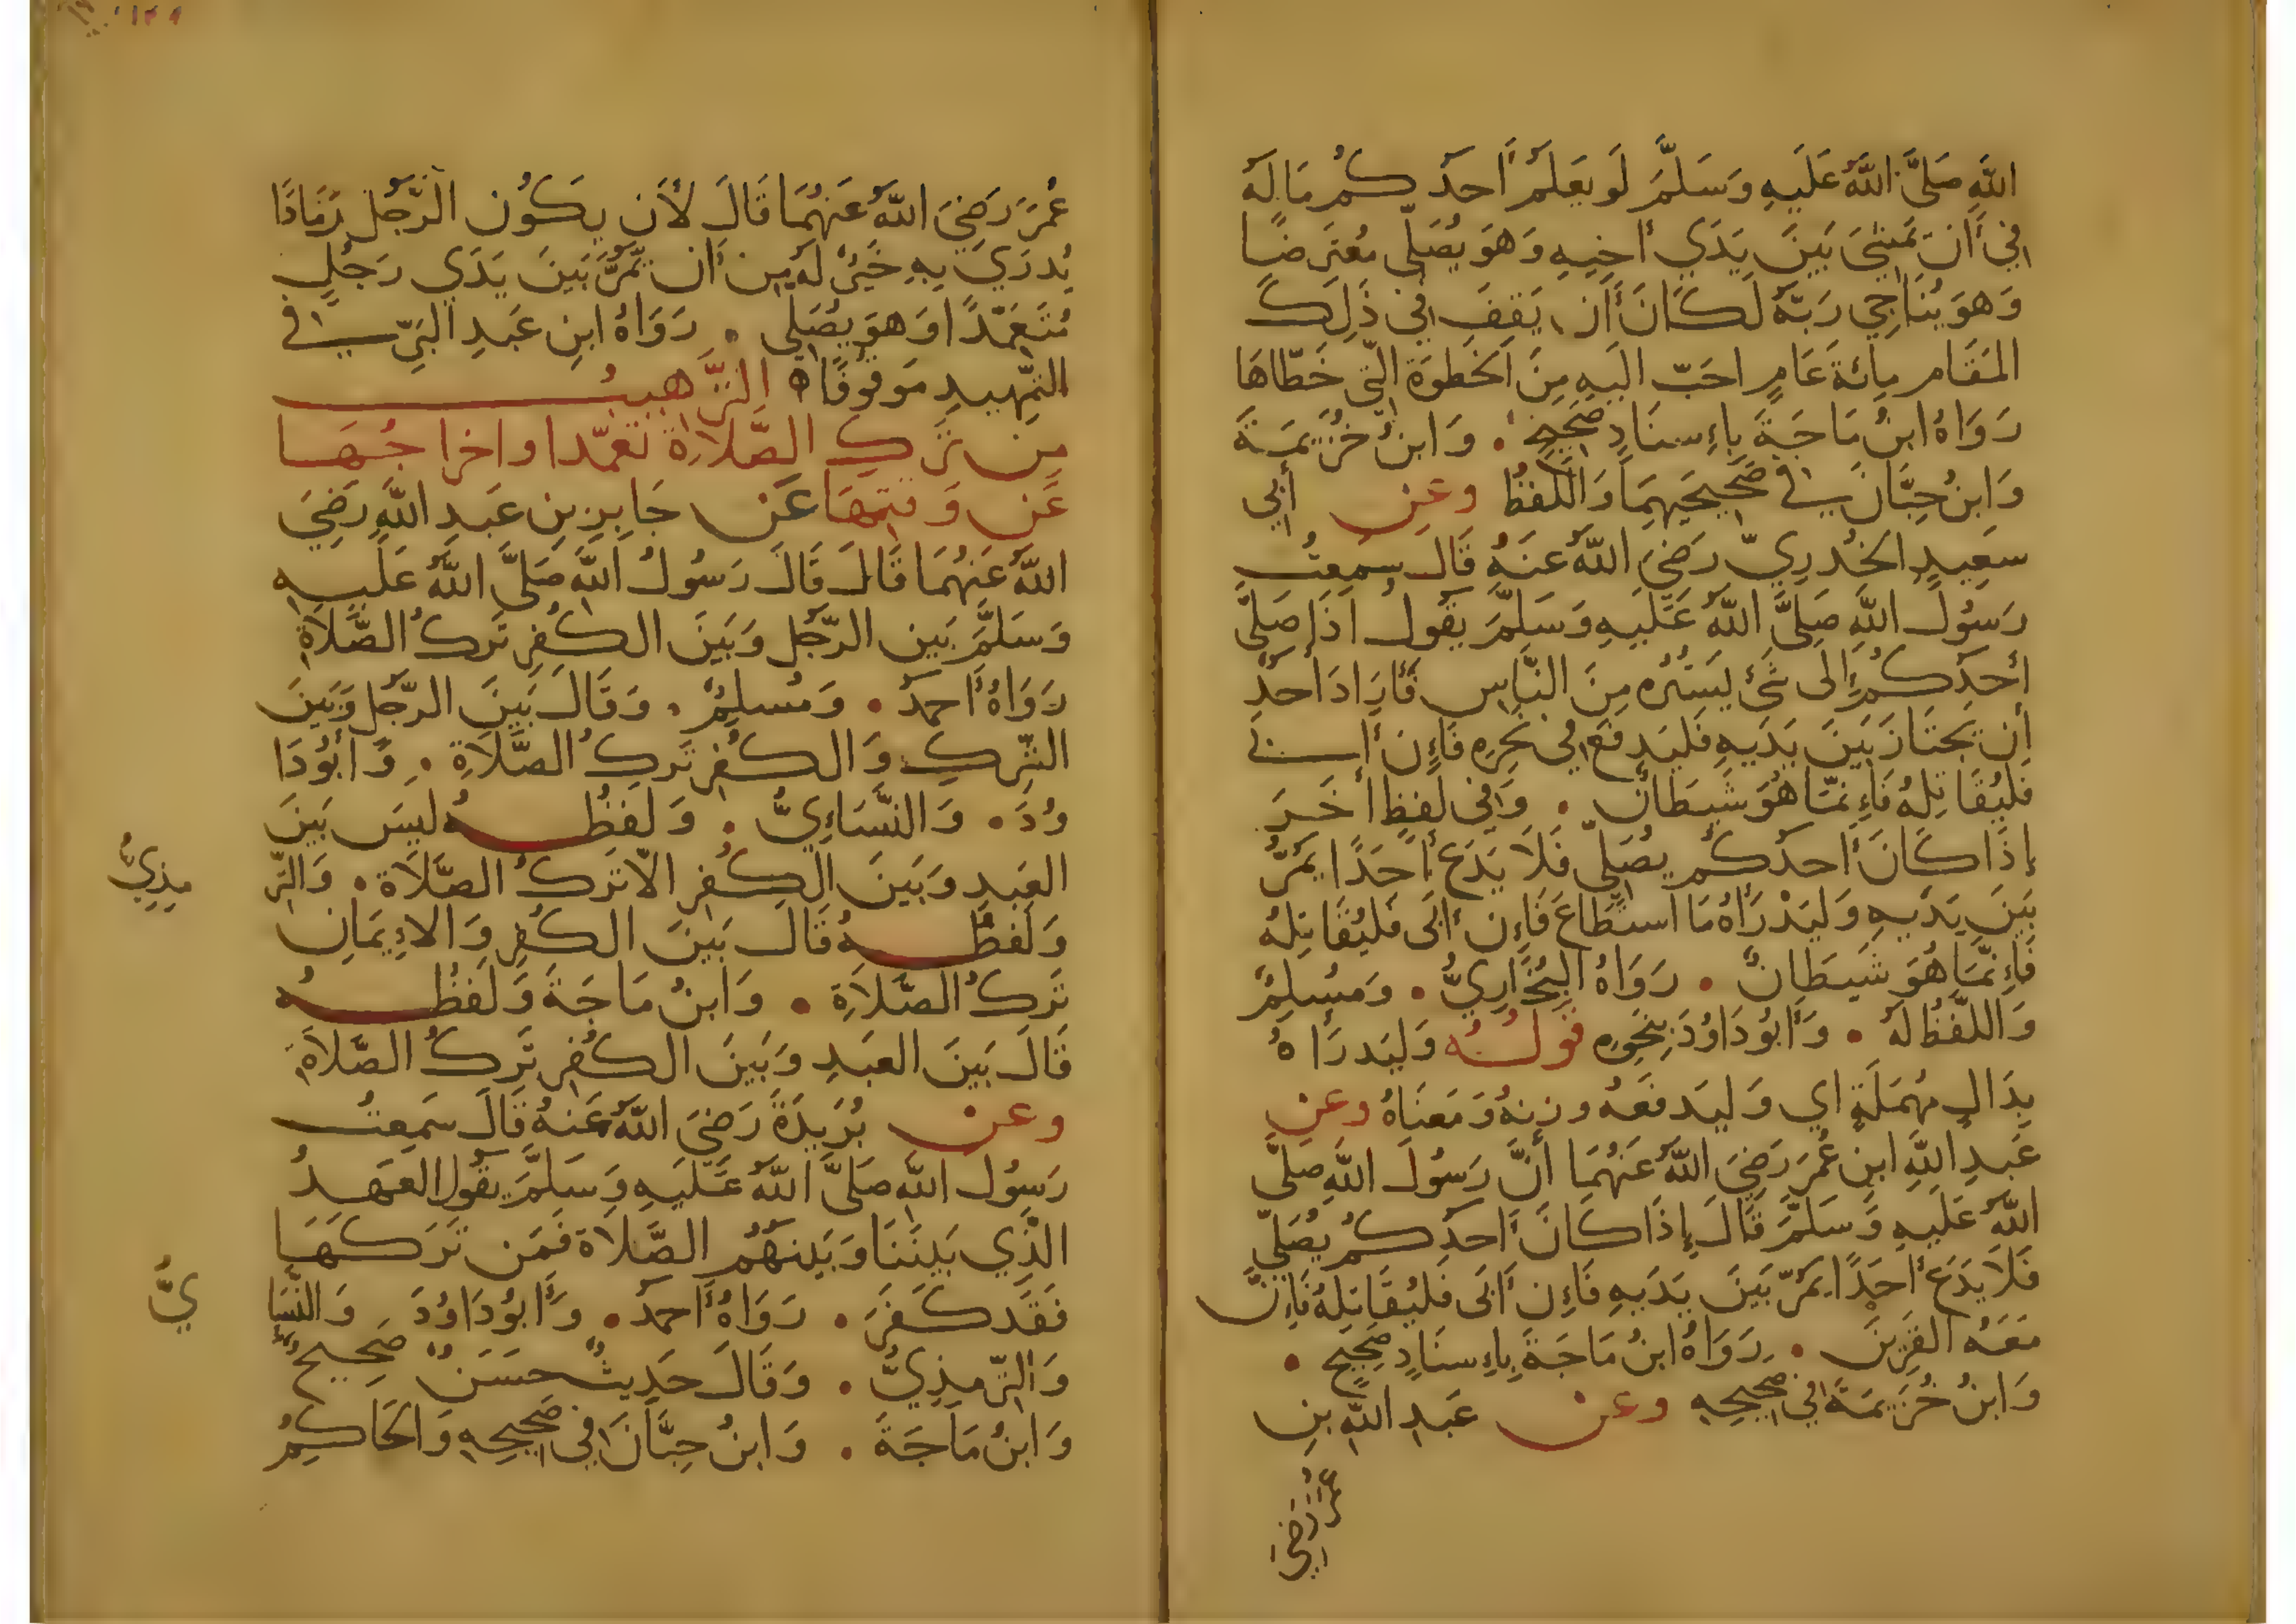 اللّٰهِ صَلَّى اللّٰهُ عَلَيهِ وَسَلَّمَ لَو يَعلَمُ أَحَدُكُم مَا لَهُ
فِي أَن يَمشِيَ بَينَ يَدَي أَخِيهِ وَهوَ يُصَلِّي مُعتَرِضًا
وَهوَ يُنَاجِي رَبَّهُ لَكَانَ أَن يَقِفَ فِي ذَلِكَ
المَقَامِ مِائَةَ عَامٍ احَبّ الَيهِ مِنَ الخَطوَةِ الَّتِي خَطَّاهَا
رَوَاهُ ابنُ مَاجَةَ بِإِسنَادٍ صَحِيحٍ . وَابنُ خُزَيمَةَ
وَابنُ حِبَّانَ في صَحِيحَيهِمَا وَاللَّفظُ وعَن أَبِي
سَعِيدٍ الخُدرِيِّ رَضِيَ اللّٰهُ عَنهُ قَالَ سَمِعتُ
رَسُولَ اللّٰهِ صَلَّى اللّٰهُ عَلَيهِ وَسَلَّمَ يَقُولُ اذَا صَلَّى
أَحَدُكُم إِلَى شَيْءٍ يَستُرُه مِنَ النَّاسِ فَأَرَادَ أَحَدٌ
أَن يَجتَازَ بَينَ يَدَيهِ فَليَدفَع فِي نَحرِهِ فَإِن أَبَى
فَليُقَاتِلهُ فَإِنَّمَا هُوَ شَيطَانٌ . وَفِي لَفظٍ أَخَرَ
إِذَا كَانَ أَحَدُكُم يُصَلِّي فَلَا يَدَع أَحَدًا يَمُرُّ
بَينَ يَدَيهِ وَليَدْرَأهُ مَا استَطَاعَ فَإِن أَبَى فَليُقَاتِلهُ
فَإِنَّمَا هُوَ شَيطَانٌ . رَوَاهُ البُخَارِيُّ . وَمُسلِمٌ
وَاللَّفظُ لَهُ . وَأَبُو دَاوُدَ بِنَحوِهِ قَولُهُ وَليَدرَأهُ
بِدَالٍ مُهمَلَةٍ اي وَليَدفَعهُ وزنهُ وَمَعنَاهُ وعن
عَبدِ اللّٰهِ ابنِ عُمَرَ رَضِيَ اللّٰهُ عَنهُمَا أَنَّ رَسُولَ اللّٰهِ صَلَّى
اللّٰهُ عَلَيهِ وَسَلَّمَ قَالَ إِذَا كَانَ أَحَدُكُم يُصَلِّي
فَلَا يَدَع أَحَدًا يَمُرّ بَينَ يَدَيهِ فَإِن أَبَى فَليُقَاتِلهُ فَإِنَّ
مَعَهُ القَرِينَ . رَوَاهُ ابنُ مَاجَةَ بِإِسنَادٍ صَحِيحٍ .
وَابنُ خُزَيمَةَ فِي صَحِيحِهِ وعن عَبدِ اللّٰهِ بنِ
عُمَرَ رَضِيَ
عُمَرَ رَضِيَ اللّٰهُ عَنهُمَا قَالَ لأَن يَكُونَ الرَّجُلُ رَمَادًا
يُدرَي بِهِ خَيرٌ لَهُ مِن أَن يَمُرَّ بَينَ يَدَي رَجُلٍ
مُتَعَمِّدًا وَهوَ يُصَلِّي . رَوَاهُ ابنِ عَبدِ البَرِّ في
التَّمهِيدِ مَوقُوفًا ه التَّرهِيبُ
مِن تَركِ الصَّلَاةِ تَعَمّدا واخرَاجُهَا
عَن وَقتِهَا عَن جَابِرِ بنِ عَبدِ اللّٰهِ رَضِيَ
اللّٰهُ عَنهُمَا قَالَ قَالَ رَسُولُ اللّٰهِ صَلَّى اللّٰهُ عَلَيهِ
وَسَلَّمَ بَينَ الرَّجُلِ وَبَينَ الكُفرِ تَركُ الصَّلَاةِ
رَوَاهُ أَحمَدُ . وَمُسلِمٌ . وَقَالَ بَينَ الرَّجُلِ وَبَينَ
الشِّركِ وَالكُفرِ تَركُ الصَّلَاةِ . وَأَبُو دَا
وُدَ . وَالنَّسَاءِيُّ . وَلَفظُهُ لَيسَ بَينَ
العَبدِ وَبَينَ الكُفرِ الّا تَركُ الصَّلَاةِ . وَالتِّر
مِذِيُّ
وَلَفظُهُ قَالَ بَينَ الكُفرِ وَالاءِيمَانِ
تَركُ الصَّلَاةِ . وَابنُ مَاجَةَ وَلَفظُهُ
قَالَ بَينَ العَبدِ وَبَينَ الكُفرِ تَركُ الصَّلَاةِ
وعن بُرَيدَةَ رَضِيَ اللّٰهُ عَنهُ قَالَ سَمِعتُ
رَسُولَ اللّٰهِ صَلَّى اللّٰهُ عَلَيهِ وَسَلَّمَ يَقُولُ العَهدُ
الَّذِي بَينَنَا وَبَينَهُم الصَّلَاةُ فَمَن تَرَكَهَا
فَقَد كَفَرَ . رَوَاهُ أَحمَدُ . وَأَبُو دَاوُدَ وَالنَّسَا
يُّ
وَالتِّرمِذِيُّ . وَقَالَ حَدِيثٌ حَسَنٌ صَحِيحٌ
وَابنُ مَاجَةَ . وَابنُ حِبَّانَ فِي صَحِيحِهِ وَالحَاكِمُ